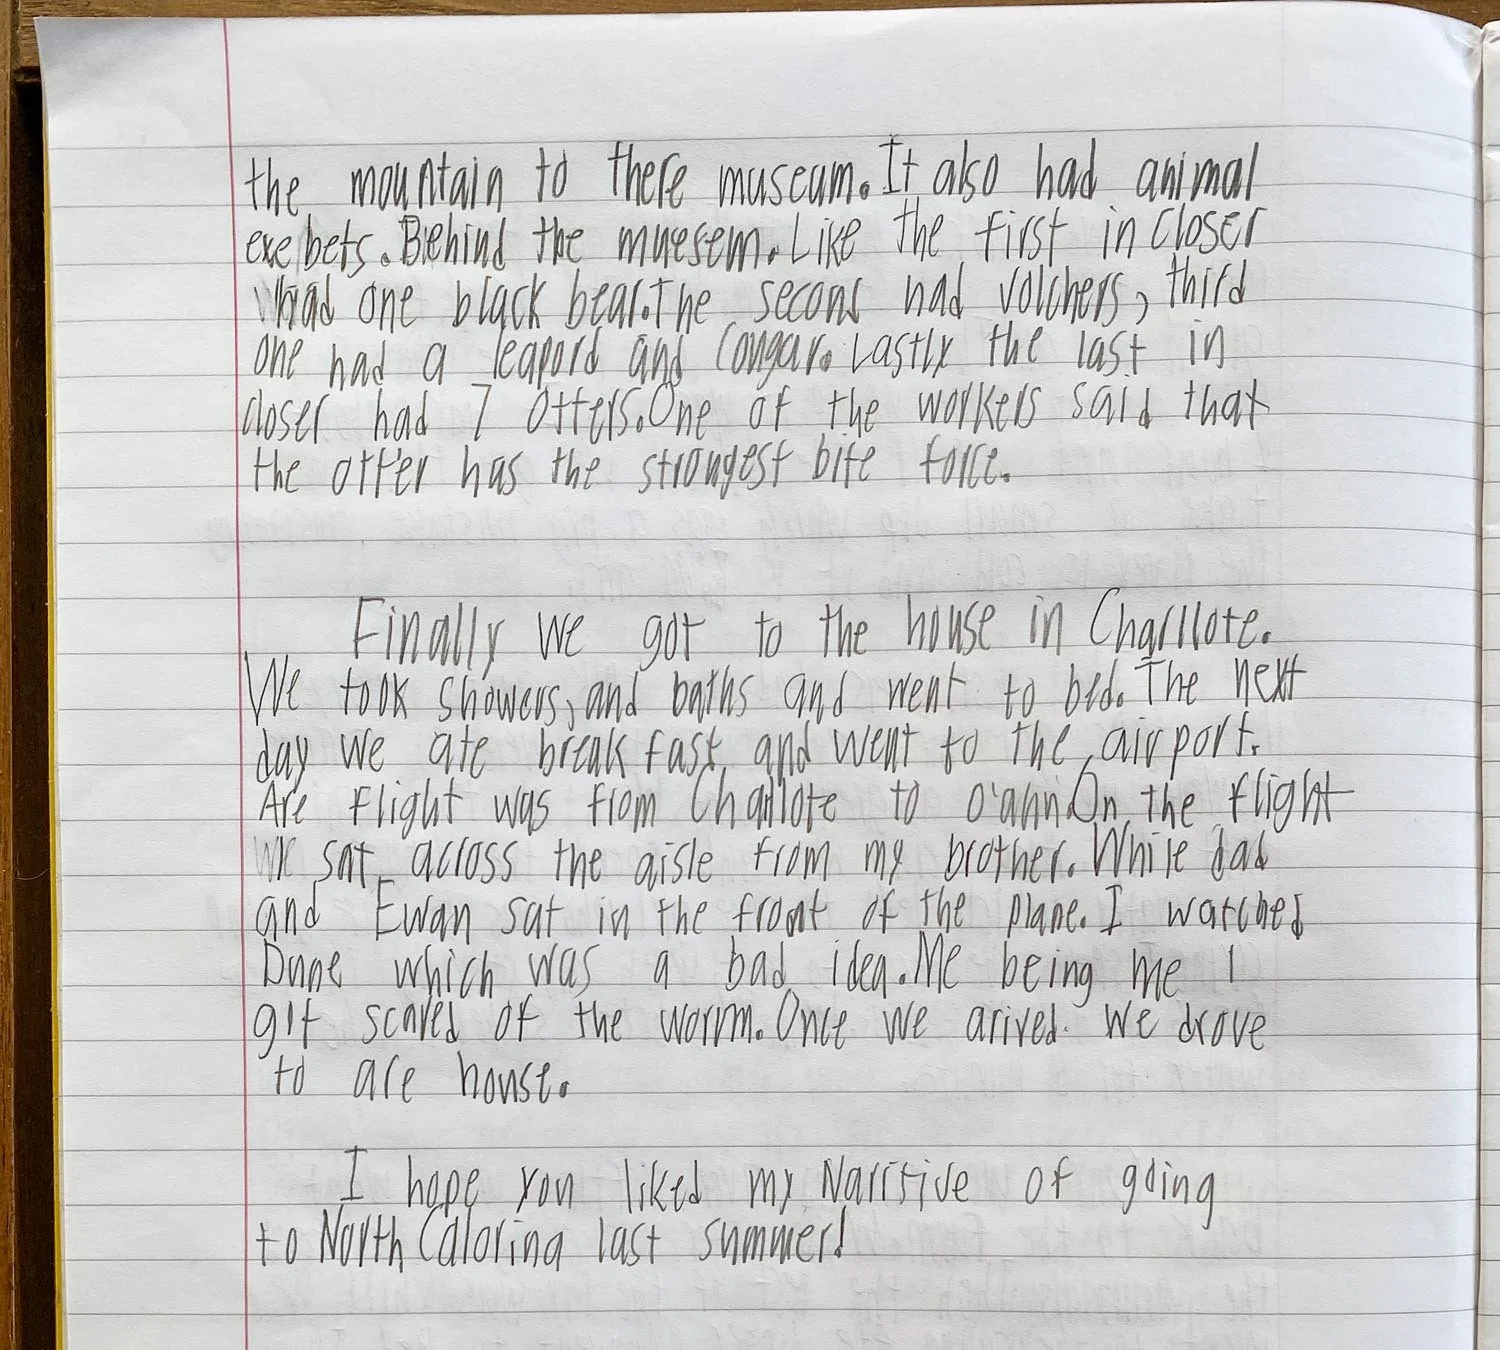 the mountain to there museam. It also had animal
exebets. Behind the muesem. Like the first in closer
had one black bear. The second had volchers, third
one had a leapord and Congar. Lastly the last in
closer had 7 otters. One of the workers said that
the otter has the strongest bite force.
Finally we got to the house in Charllote.
We took showers, and baths and went to bed. The next
day we ate break fast and went to the airport.
Are flight was from Charllote to O'ahu. On the flight
we sat across the aisle from my brother. While dad
and Ewan sat in the front of the plane. I watched
Dune which was a bad idea. Me being me I
got scared of the worm. Once we arived. We drove
to are house.
I hope you liked my Narritive of going
to North Caloring last summer!